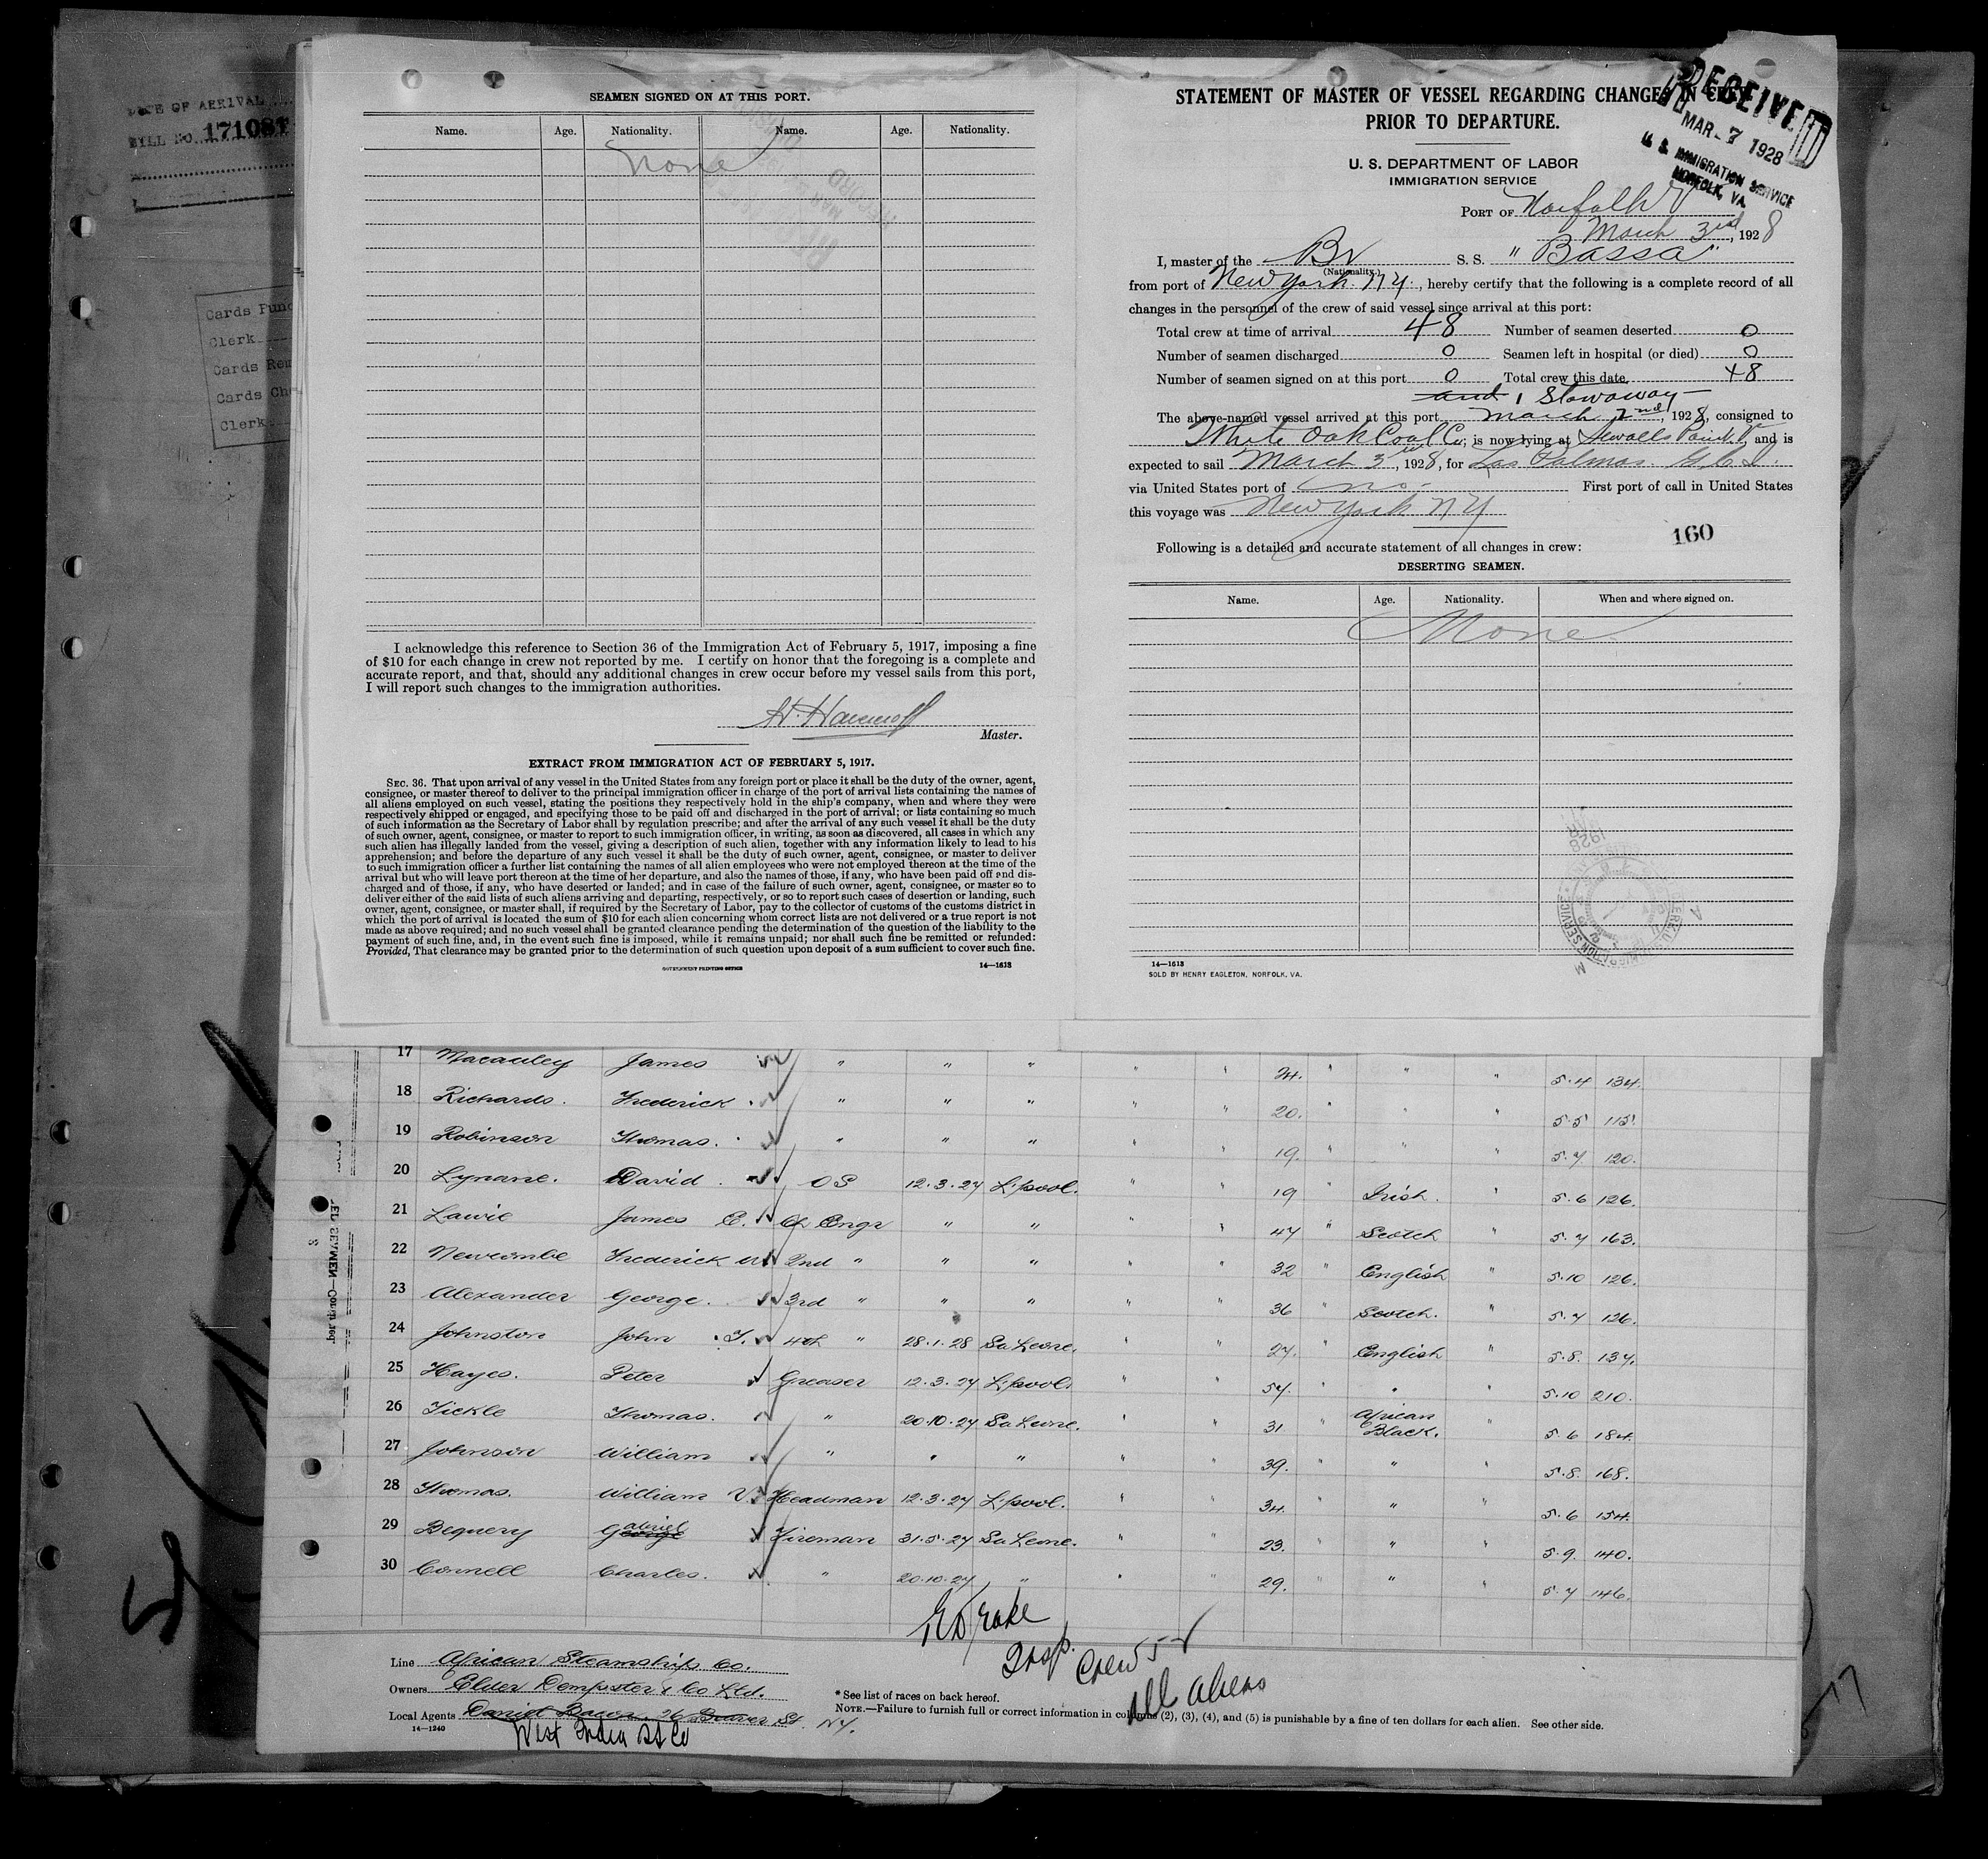 DATE OF ARRIVAL
BILL NO. 17108
Cards Punc
Clerk
Cards Rem
Cards Che
Clerk
SEAMEN SIGNED ON AT THIS PORT.
Name. Age. Nationality. Name. Age. Nationality.
None
I acknowledge this reference to Section 36 of the Immigration Act of February 5, 1917, imposing a fine
of $10 for each change in crew not reported by me. I certify on honor that the foregoing is a complete and
accurate report, and that, should any additional changes in crew occur before my vessel sails from this port,
I will report such changes to the immigration authorities.
Master.
EXTRACT FROM IMMIGRATION ACT OF FEBRUARY 5, 1917.
SEC. 36. That upon arrival of any vessel in the United States from any foreign port or place it shall be the duty of the owner, agent,
consignee, or master thereof to deliver to the principal immigration officer in charge of the port of arrival lists containing the names of
all aliens employed on such vessel, stating the positions they respectively hold in the ship's company, when and where they were
respectively shipped or engaged, and specifying those to be paid off and discharged in the port of arrival; or lists containing so much
of such information as the Secretary of Labor shall by regulation prescribe; and after the arrival of any such vessel it shall be the duty
of such owner, agent, consignee, or master to report to such immigration officer, in writing, as soon as discovered, all cases in which any
such alien has illegally landed from the vessel, giving a description of such alien, together with any information likely to lead to his
apprehension; and before the departure of any such vessel it shall be the duty of such owner, agent, consignee, or master to deliver
to such immigration officer a further list containing the names of all alien employees who were not employed thereon at the time of the
arrival but who will leave port thereon at the time of her departure, and also the names of those, if any, who have been paid off and dis-
charged and of those, if any, who have deserted or landed; and in case of the failure of such owner, agent, consignee, or master so to
deliver either of the said lists of such aliens arriving and departing, respectively, or so to report such cases of desertion or landing, such
owner, agent, consignee, or master shall, if required by the Secretary of Labor, pay to the collector of customs of the customs district in
which the port of arrival is located the sum of $10 for each alien concerning whom correct lists are not delivered or a true report is not
made as above required; and no such vessel shall be granted clearance pending the determination of the question of the liability to the
payment of such fine, and, in the event such fine is imposed, while it remains unpaid; nor shall such fine be remitted or refunded:
Provided, That clearance may be granted prior to the determination of such question upon deposit of a sum sufficient to cover such fine.
GOVERNMENT PRINTING OFFICE 14—1613
STATEMENT OF MASTER OF VESSEL REGARDING CHANGES IN CREW
PRIOR TO DEPARTURE.
RECEIVED
MAR - 7 1928
U. S. IMMIGRATION SERVICE
NORFOLK, VA.
U. S. DEPARTMENT OF LABOR
IMMIGRATION SERVICE
PORT OF Norfolk V
March 3rd, 1928
I, master of the Br S. S. "Bassa"
(Nationality.)
from port of New York. N Y., hereby certify that the following is a complete record of all
changes in the personnel of the crew of said vessel since arrival at this port:
Total crew at time of arrival 48 Number of seamen deserted 0
Number of seamen discharged 0 Seamen left in hospital (or died) 0
Number of seamen signed on at this port 0 Total crew this date 48
and 1 Stowaway
The above-named vessel arrived at this port March 2nd, 1928, consigned to
White Oak Coal Co, is now lying at Sewalls Point V, and is
expected to sail March 3rd, 1928, for Las Palmas G. C. I.
via United States port of no First port of call in United States
this voyage was New York N Y
160
Following is a detailed and accurate statement of all changes in crew:
DESERTING SEAMEN.
Name. Age. Nationality. When and where signed on.
None
14—1613
SOLD BY HENRY EAGLETON, NORFOLK, VA.
17 Macauley James " " " " " 24. " " " 5.4 134.
18 Richards. Frederick. " " " " " 20. " " " 5.5 115.
19 Robinson Thomas. " " " " " 19. " " " 5.7 120.
20 Lynane. David. OS 12.3.27 L'pool. " " 19 " Irish. " 5.6 126.
21 Lawie James E. Ch Engr " " " " 47 " Scotch " 5.7 163.
22 Newcombe Frederick W 2nd " " " " " 32 " English " 5.10 126.
23 Alexander George. 3rd " " " " " 36 " Scotch. " 5.7 126.
24 Johnston John T. 4th " 28.1.28 Sa Leone. " " 27. " English " 5.8. 137.
25 Hayes. Peter Greaser 12.3.27 L'pool. " " 57. " " " 5.10 210.
26 Tickle Thomas. " 20.10.27 Sa Leone. " " 31 " African Black. " 5.6 184.
27 Johnson William " " " " " 39. " " " 5.8. 168.
28 Thomas. William V. Headman 12.3.27 L'pool. " " 34. " " " 5.6 154.
29 Bequery Gabriel Fireman 31.5.27 Sa Leone. " " 23. " " " 5.9. 140.
30 Connell Charles. " 20.10.27 " " " 29. " " " 5.7 146.
Insp. Crew 5
All aliens
Line African Steamship Co.
Owners Elder Dempster & Co Ltd.
Local Agents Daniel Bacon 26 Beaver St. N.Y.
West India SS Co
14—1240
* See list of races on back hereof.
NOTE.—Failure to furnish full or correct information in columns (2), (3), (4), and (5) is punishable by a fine of ten dollars for each alien. See other side.